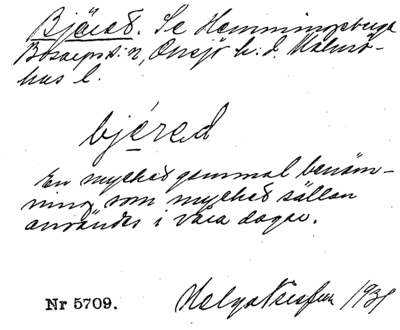 Bjäred. Se Hemmingsberga
Bosarps s:n, Onsjö h:d. Malmö-
hus l.
bjéred
En mycket gammal benäm-
ning som mycket sällan
användes i våra dagar.
Nr 5709.
Helga 1931